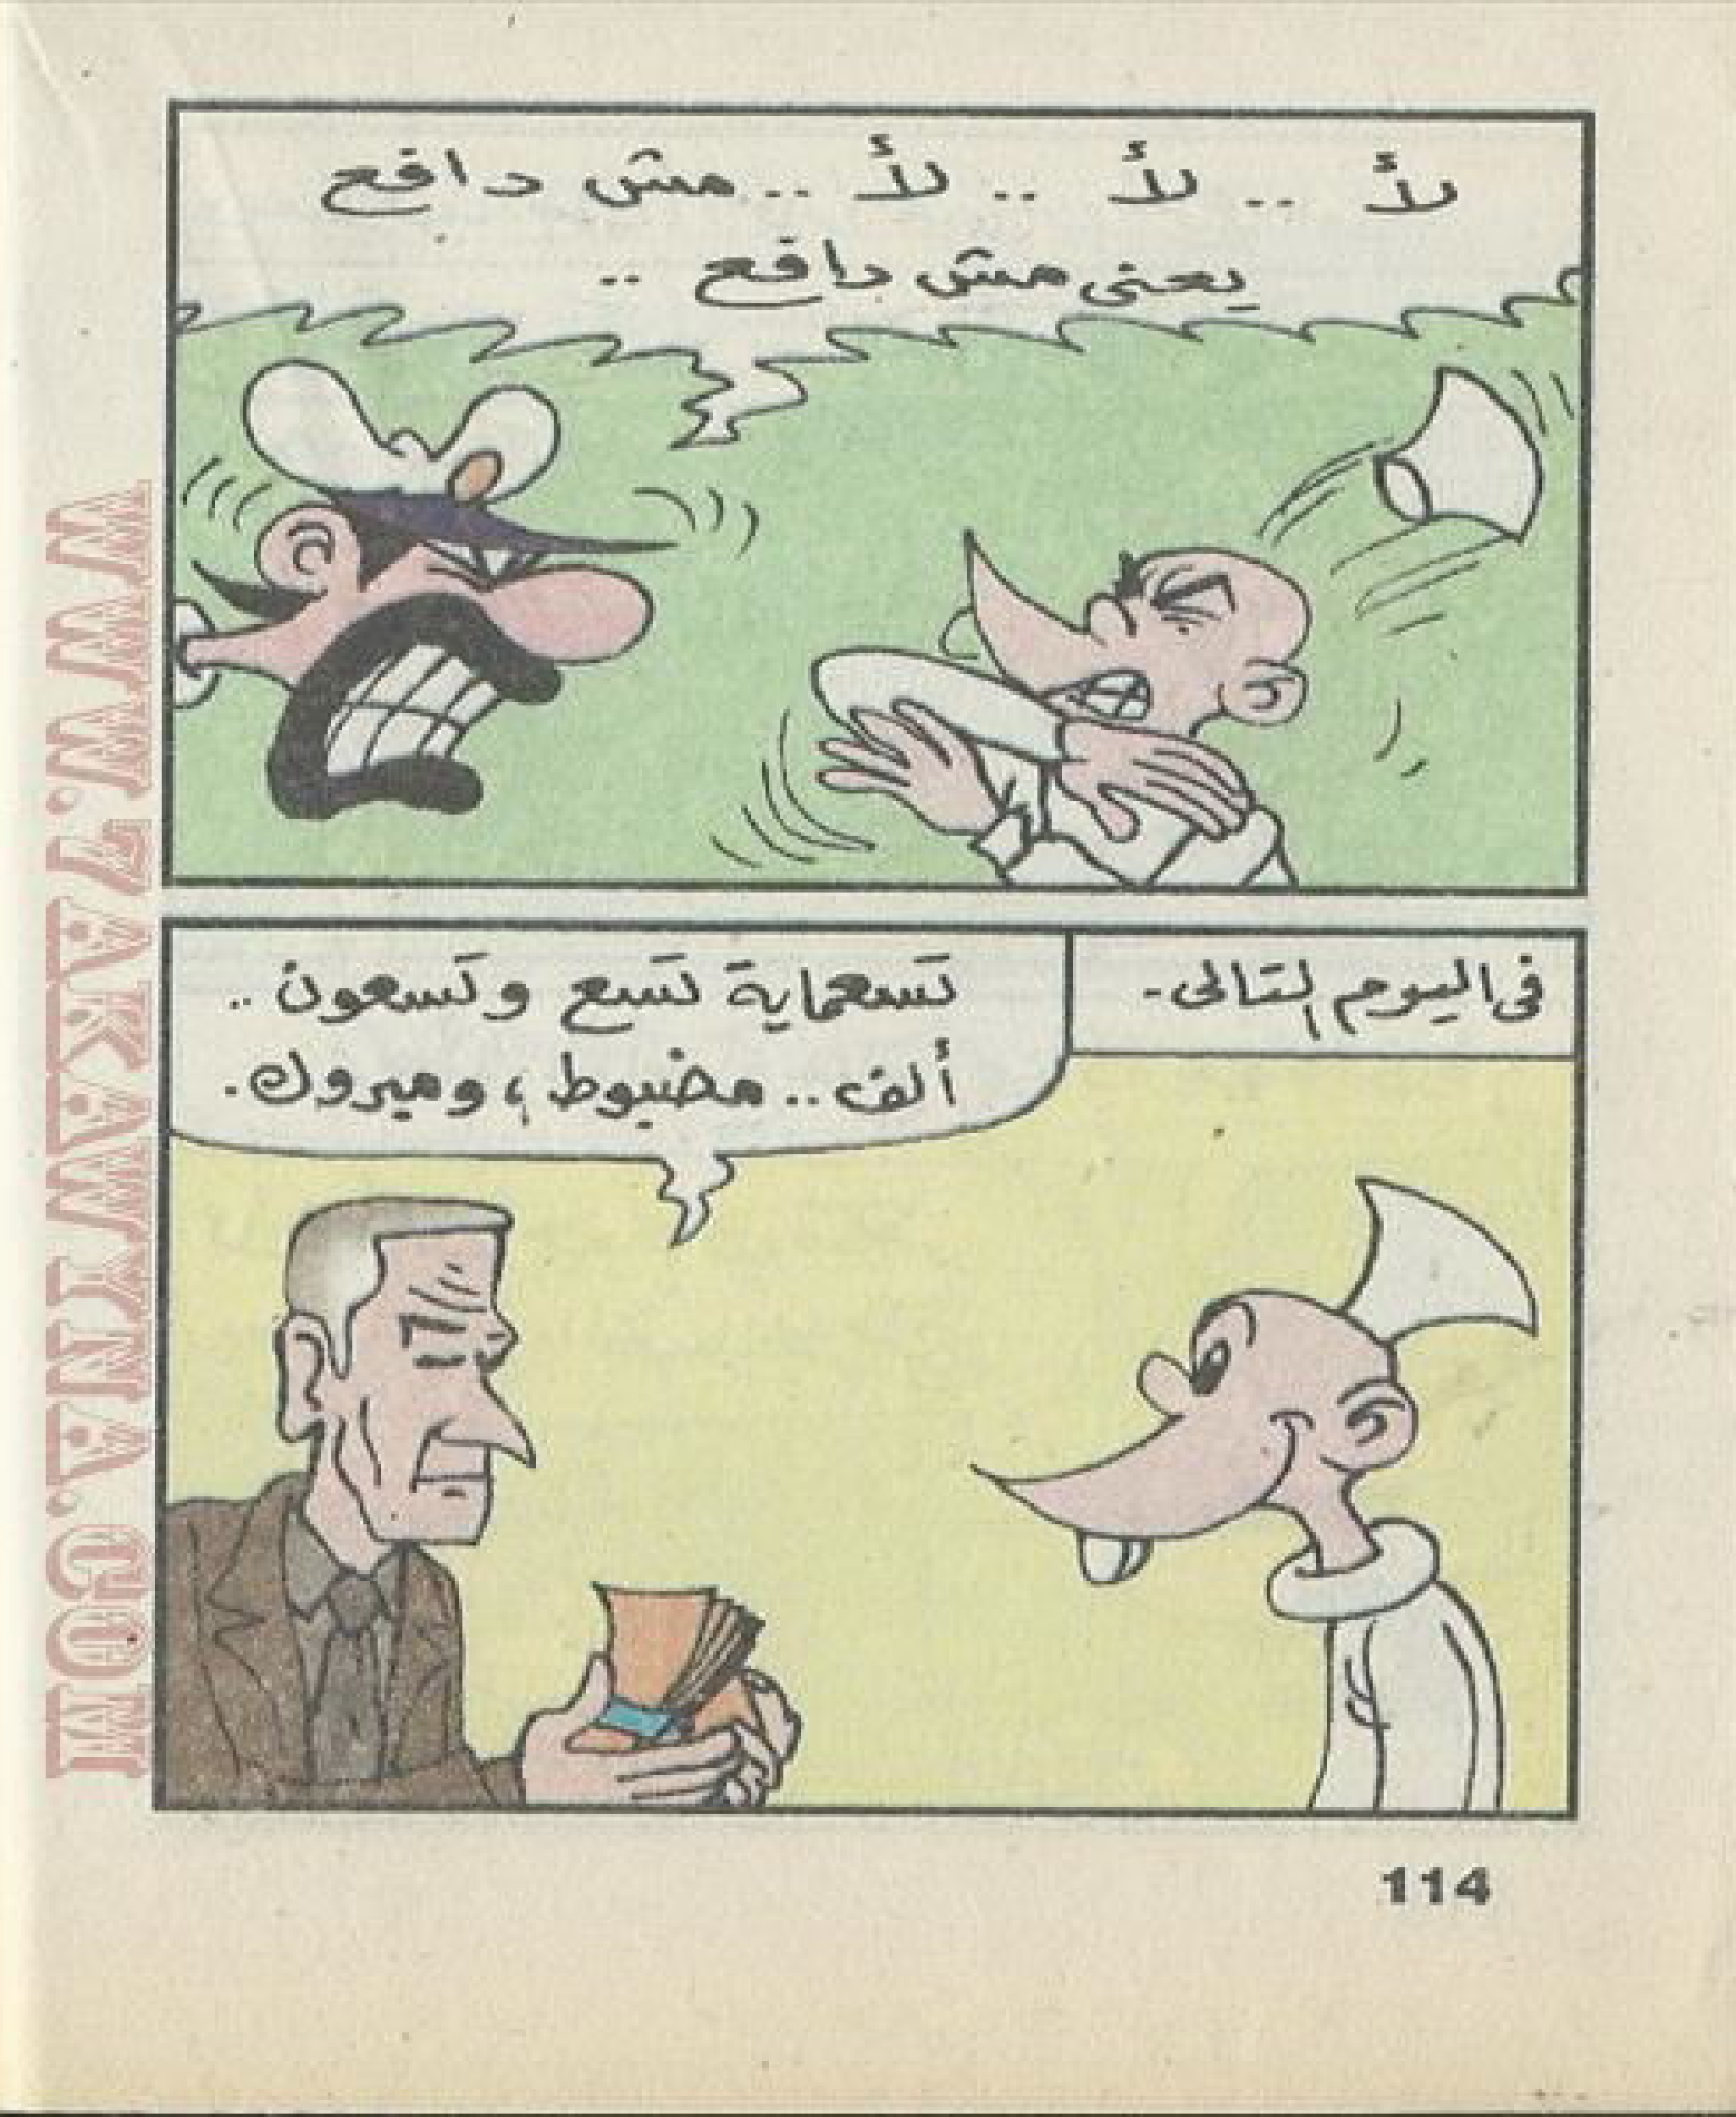 لأ .. لأ .. لأ .. مش دافع
يعنى مش دافع ..
فى اليوم التالى -
تسعماية تسع وتسعون ..
ألف .. مضبوط ، ومبروك .
114
WWW.ZAKAWYNA.COM